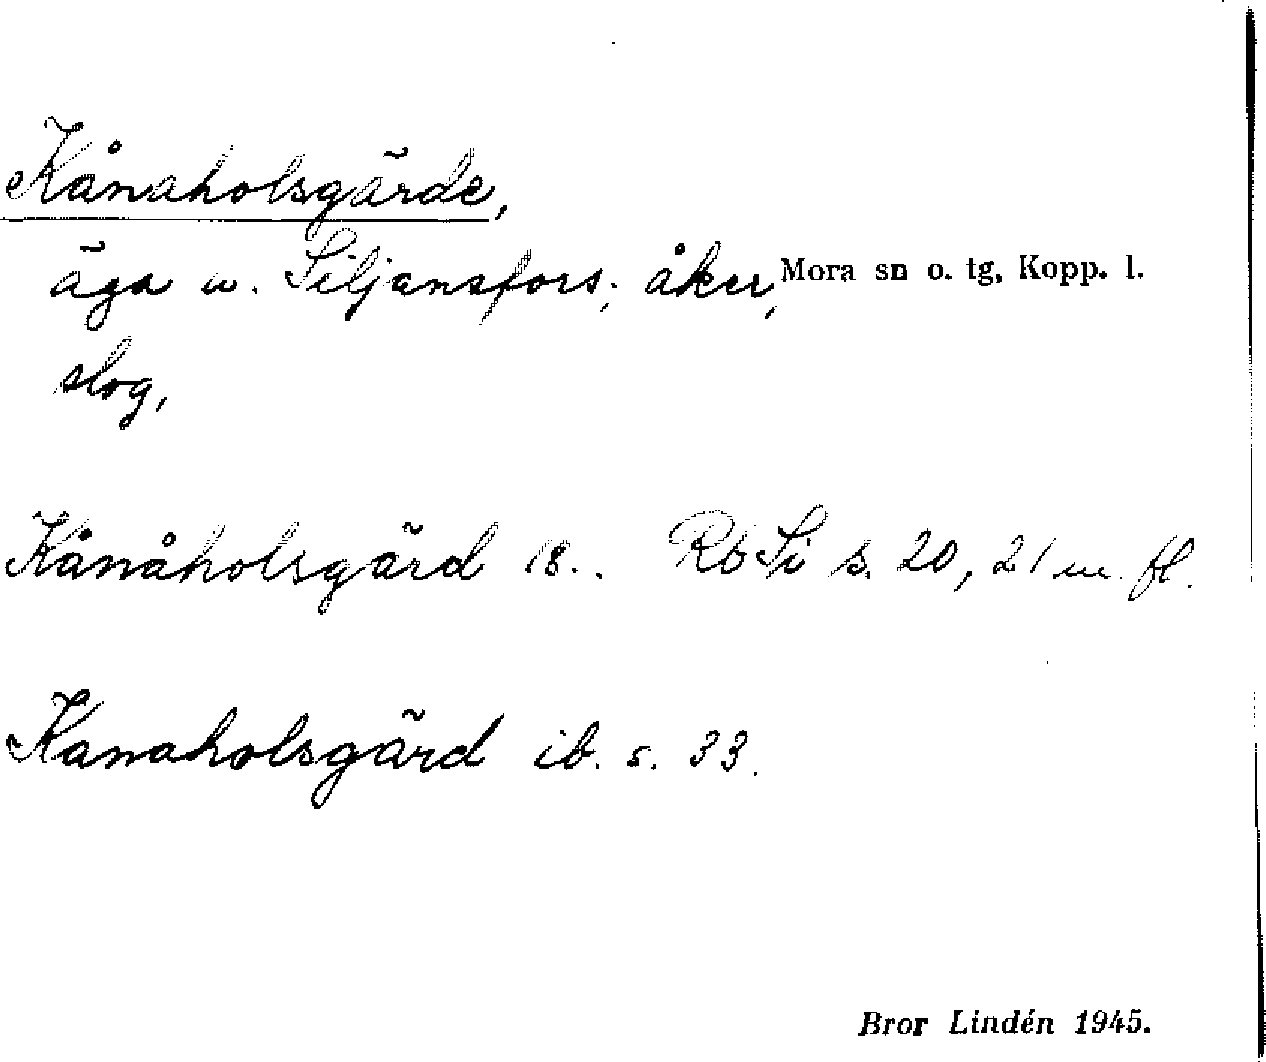 Kånaholsgärde,
äga u. Siljansfors; åker, Mora sn o. tg, Kopp. l.
slog,
Kånåholsgärd 18.. Rb Si s. 20, 21 m. fl.
Kanaholsgärd ib. s. 33.
Bror Lindén 1945.